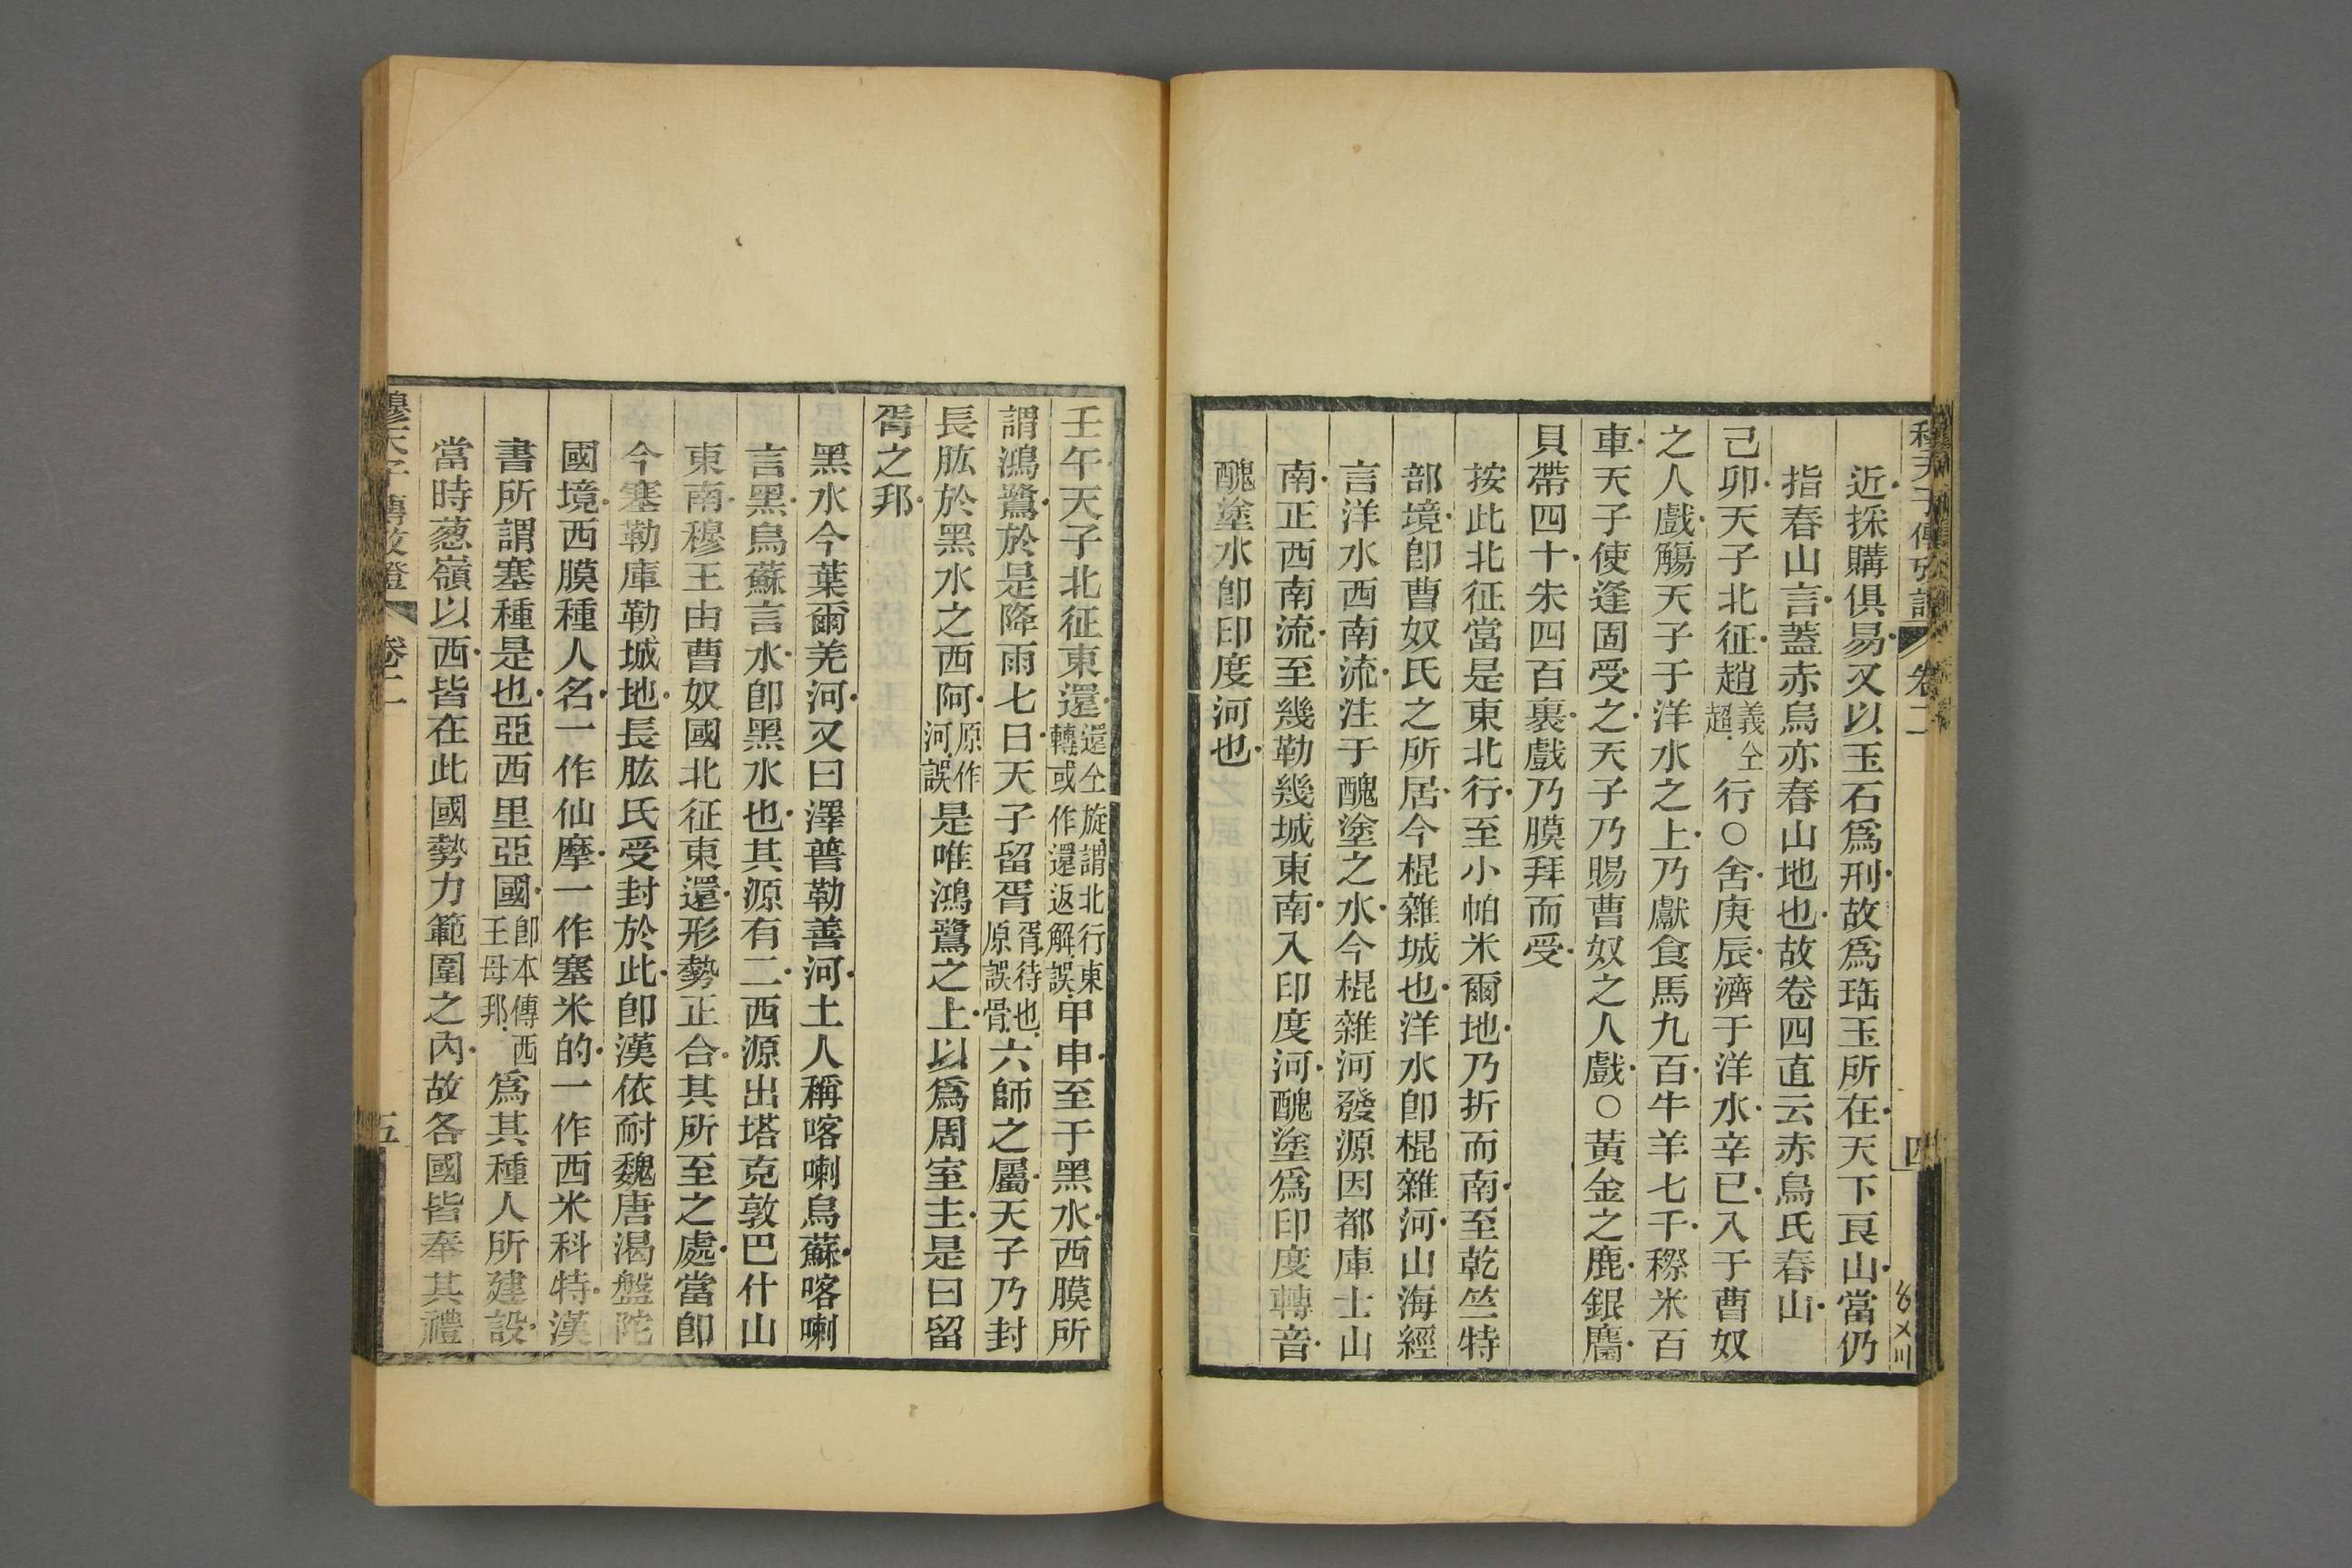 穆天子傳攷證 卷二 四
近採購俱易又以玉石爲刑故爲琂玉所在天下良山當仍
指春山言蓋赤烏亦春山地也故卷四直云赤烏氏春山
己卯天子北征趙義仝超行○舍庚辰濟于洋水辛巳入于曹奴
之人戲觴天子于洋水之上乃獻食馬九百牛羊七千穄米百
車天子使逢固受之天子乃賜曹奴之人戲○黃金之鹿銀麕
貝帶四十朱四百裹戲乃膜拜而受
按此北征當是東北行至小帕米爾地乃折而南至乾竺特
部境卽曹奴氏之所居今棍雜城也洋水卽棍雜河山海經
言洋水西南流注于醜塗之水今棍雜河發源因都庫士山
南正西南流至幾勒幾城東南入印度河醜塗爲印度轉音
醜塗水卽印度河也
壬午天子北征東還還仝旋謂北行東轉或作還返解誤甲申至于黑水西膜所
謂鴻鷺於是降雨七日天子留胥胥待也原誤骨六師之屬天子乃封
長肱於黑水之西阿原作河誤是唯鴻鷺之上以爲周室主是曰留
胥之邦
黑水今葉爾羌河又曰澤普勒善河土人稱喀喇烏蘇喀喇
言黑烏蘇言水卽黑水也其源有二西源出塔克敦巴什山
東南穆王由曹奴國北征東還形勢正合其所至之處當卽
今塞勒庫勒城地長肱氏受封於此卽漢依耐魏唐渴盤陀
國境西膜種人名一作仙摩一作塞米的一作西米科特漢
書所謂塞種是也亞西里亞國卽本傳西王母邦爲其種人所建設
當時葱嶺以西皆在此國勢力範圍之內故各國皆奉其禮
穆天子傳攷證 卷二 五